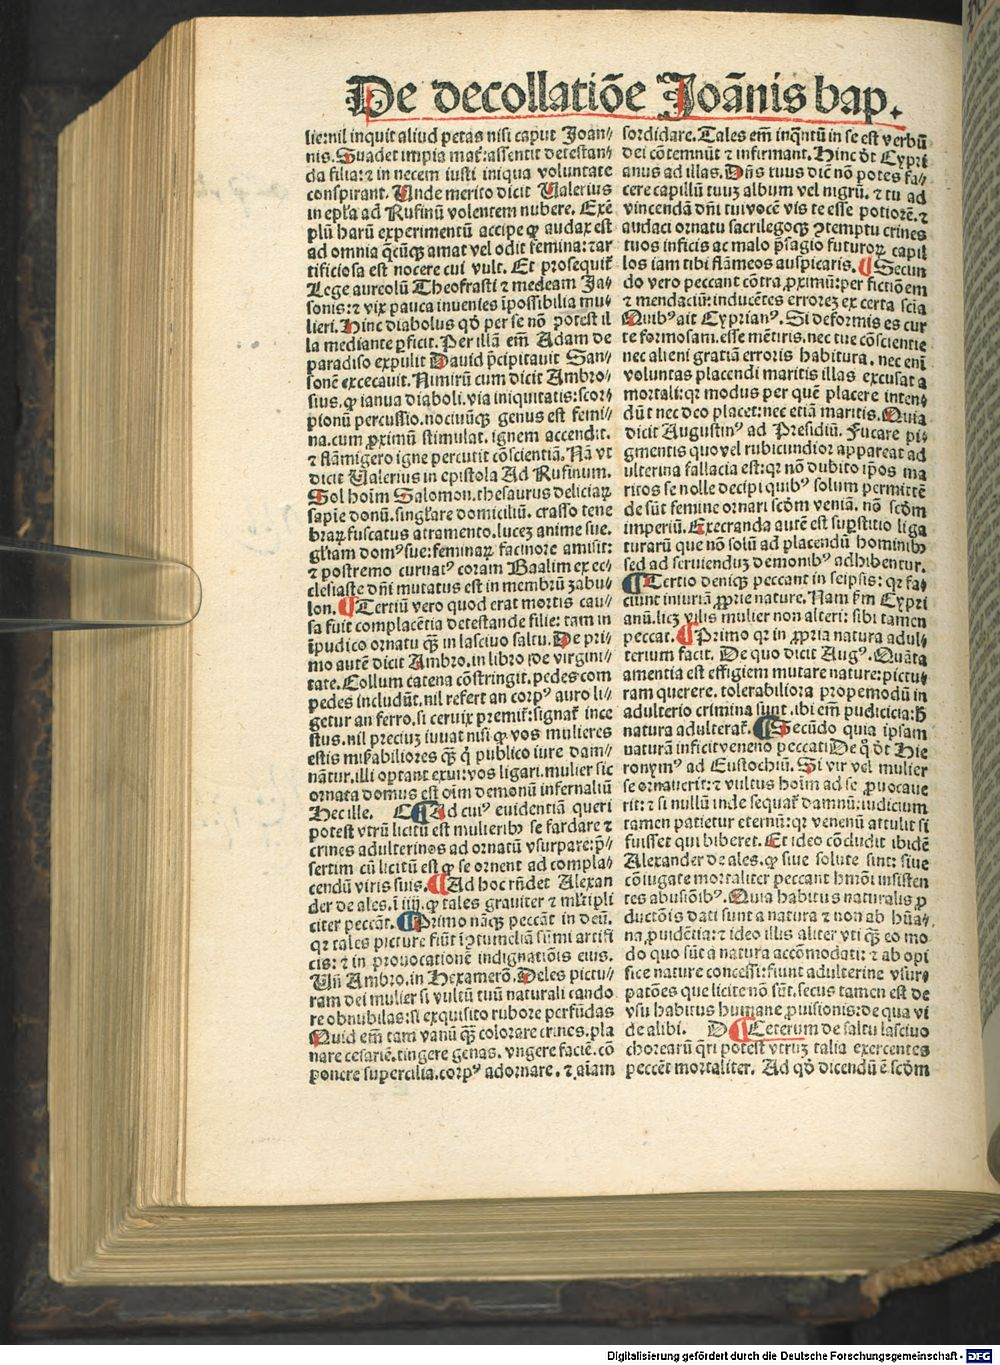 De decollatiõe Joãnis bap.
lie: nil inquit aliud petas nisi caput Joan⸗
nis. Suadet impia mať: assentit detestan⸗
da filia: ⁊ in necem iusti iniqua voluntate
conspirant. Unde merito dicit Valerius
in epľa ad Rufinū volentem nubere. Exē
plū harū experimentū accipe ꝙ audax est
ad omnia q̄cūqꝫ amat vel odit femina: ⁊ ar
tificiosa est nocere cui vult. Et prosequiť
Lege aureolū Theofrasti ⁊ medeam Ja⸗
sonis: ⁊ vix pauca inuenies īpossibilia mu⸗
lieri. Hinc diabolus qđ per se nō potest il
la mediante ꝑficit. Per illā em̄ Adam de
paradiso expulit Dauid p̄cipitauit San⸗
sonē excecauit. Nimirū cum dicit Ambro⸗
sius. ꝙ ianua diaboli. via iniquitatis: scor⸗
pionū percussio. nociuūqꝫ genus est femi⸗
na. cum ꝓximū stimulat. ignem accendit.
⁊ flāmigero igne percutit cōscientiā. Nā vt
dicit Valerius in epistola Ad Rufinum.
Sol hoīm Salomon. thesaurus deliciaꝝ
sapīe donū. singľare domiciliū. crasso tene
braꝝ fuscatus atramento. lucez anime sue.
gľiam domꝰ sue: feminaꝝ facinore amisit:
⁊ postremo curuatꝰ coram Baalim ex ec⸗
clesiaste dn̄i mutatus est in membrū zabu⸗
lon. ¶ Tertiū vero quod erat mortis cau⸗
sa fuit complacētia detestande filie: tam in
īpudico ornatu q̄ꝫ in lasciuo saltu. De pri⸗
mo autē dicit Ambro. in libro de virgini⸗
tate. Collum catena cōstringit. pedes com
pedes includūt. nil refert an corpꝰ auro li⸗
getur an ferro. si ceruix premiť: signať ince
stus. nil preciuz iuuat nisi ꝙ vos mulieres
estis miřabiliores q̄ꝫ q̇ publico iure dam⸗
nātur. illi optant exui: vos ligari. mulier sic
ornata domus est oīm demonū infernaliū
Hec ille. C ¶ Ad cuiꝰ euidentiā queri
potest vtrū licitū est mulieribꝫ se fardare ⁊
crines adulterinos ad ornatū vsurpare: p̄⸗
sertim cū licitū est ꝙ se ornent ad compla⸗
cendū viris suis. ¶ Ad hoc rn̄det Alexan
der de ales. ī iiij. ꝙ tales grauiter ⁊ mľtipli
citer peccāt. ¶ Primo nāqꝫ peccāt in deū.
qꝛ tales picture fiūt ī ꝯtumeliā sūmi artifi
cis: ⁊ in prouocationē indignatiōis eius.
Un̄ Ambro. in Hexamerō. Deles pictu⸗
ram dei mulier si vultū tuū naturali cando
re obnubilas: si exquisito rubore perfūdas
Quid em̄ tam vanū q̄ꝫ colorare crines. pla
nare cesariē. tingere genas. vngere faciē. cō
ponere supercilia. corpꝰ adornare. ⁊ aīam
sordidare. Tales em̄ inq̄ntū in se est verbū
dei cōtemnūt ⁊ infirmant. Hinc đt Cypri
anus ad illas. Dn̄s tuus dic̄ nō potes fa⸗
cere capillū tuuz album vel nigrū. ⁊ tu ad
vincendā dn̄i tui vocē vis te esse potiorē. ⁊
audaci ornatu sacrilegoqꝫ ꝯtemptu crines
tuos inficis ac malo p̄sagio futuroꝝ capil
los iam tibi flāmeos auspicaris. ¶ Secun
do vero peccant cōtra ꝓximū: per fictiōem
⁊ mendaciū: inducētes errorez ex certa scīa
Quibꝰ ait Cyprianꝰ. Si deformis es cur
te formosam. esse mētiris. nec tue cōscientie
nec alieni gratiā erroris habitura. nec enī
voluntas placendi maritis illas excusat a
mortali: qꝛ modus per quē placere inten⸗
dūt nec deo placet: nec etiā maritis. Quia
dicit Augustinꝰ ad Presidiū. Fucare pi⸗
gmentis quo vel rubicundior appareat ad
ulterina fallacia est: qꝛ nō dubito ip̄os ma
ritos se nolle decipi quibꝰ solum permittē
de sūt femine ornari scđm veniā. nō scđm
imperiū. Execranda autē est suꝑstitio liga
turarū que nō solū ad placendū hominibꝫ
sed ad seruienduz demonibꝰ adhibentur.
¶ Tertio deniqꝫ peccant in seipsis: qꝛ fa⸗
ciunt iniuriā ꝓprie nature. Nam ẜm Cypri
anū. licꝫ vilis mulier non alteri: sibi tamen
peccat. ¶ Primo qꝛ in ꝓpria natura adul⸗
terium facit. De quo dicit Augꝰ. Quāta
amentia est effigiem mutare nature: pictu⸗
ram querere. tolerabiliora propemodū in
adulterio crimina sunt. ibi em̄ pudicicia: ħ
natura adulterať. ¶ Secūdo quia ipsam
naturā inficit veneno peccati De q̊ đt Hie
ronymꝰ ad Eustochiū. Si vir vel mulier
se ornauerit: ⁊ vultus hoīm ad se ꝓuocaue
rit: ⁊ si nullū inde sequať damnū: iudicium
tamen patietur eternū: qꝛ venenū attulit si
fuisset qui biberet. Et ideo cōcludit ibidē
Alexander de ales. ꝙ siue solute sint: siue
cōiugate mortaliter peccant hmōi insisten
tes abusiōibꝰ. Quia habitus naturalis ꝓ
ductōis dati sunt a natura ⁊ non ab hūa⸗
na ꝓuidētia: ⁊ ideo illis aliter vti q̄ꝫ eo mo⸗
do quo sūt a natura accōmodati: ⁊ ab opi
fice nature concessi: fiunt adulterine vsur⸗
patōes que licite nō sūt. secus tamen est de
vsu habitus humane ꝓuisionis: de qua vi
de alibi. D ¶ Ceterum de saltu lasciuo
chorearū q̄ri potest vtruꝫ talia exercentes
peccēt mortaliter. Ad qđ dicendū ē scđm
Digitalisierung gefördert durch die Deutsche Forschungsgemeinschaft - DFG